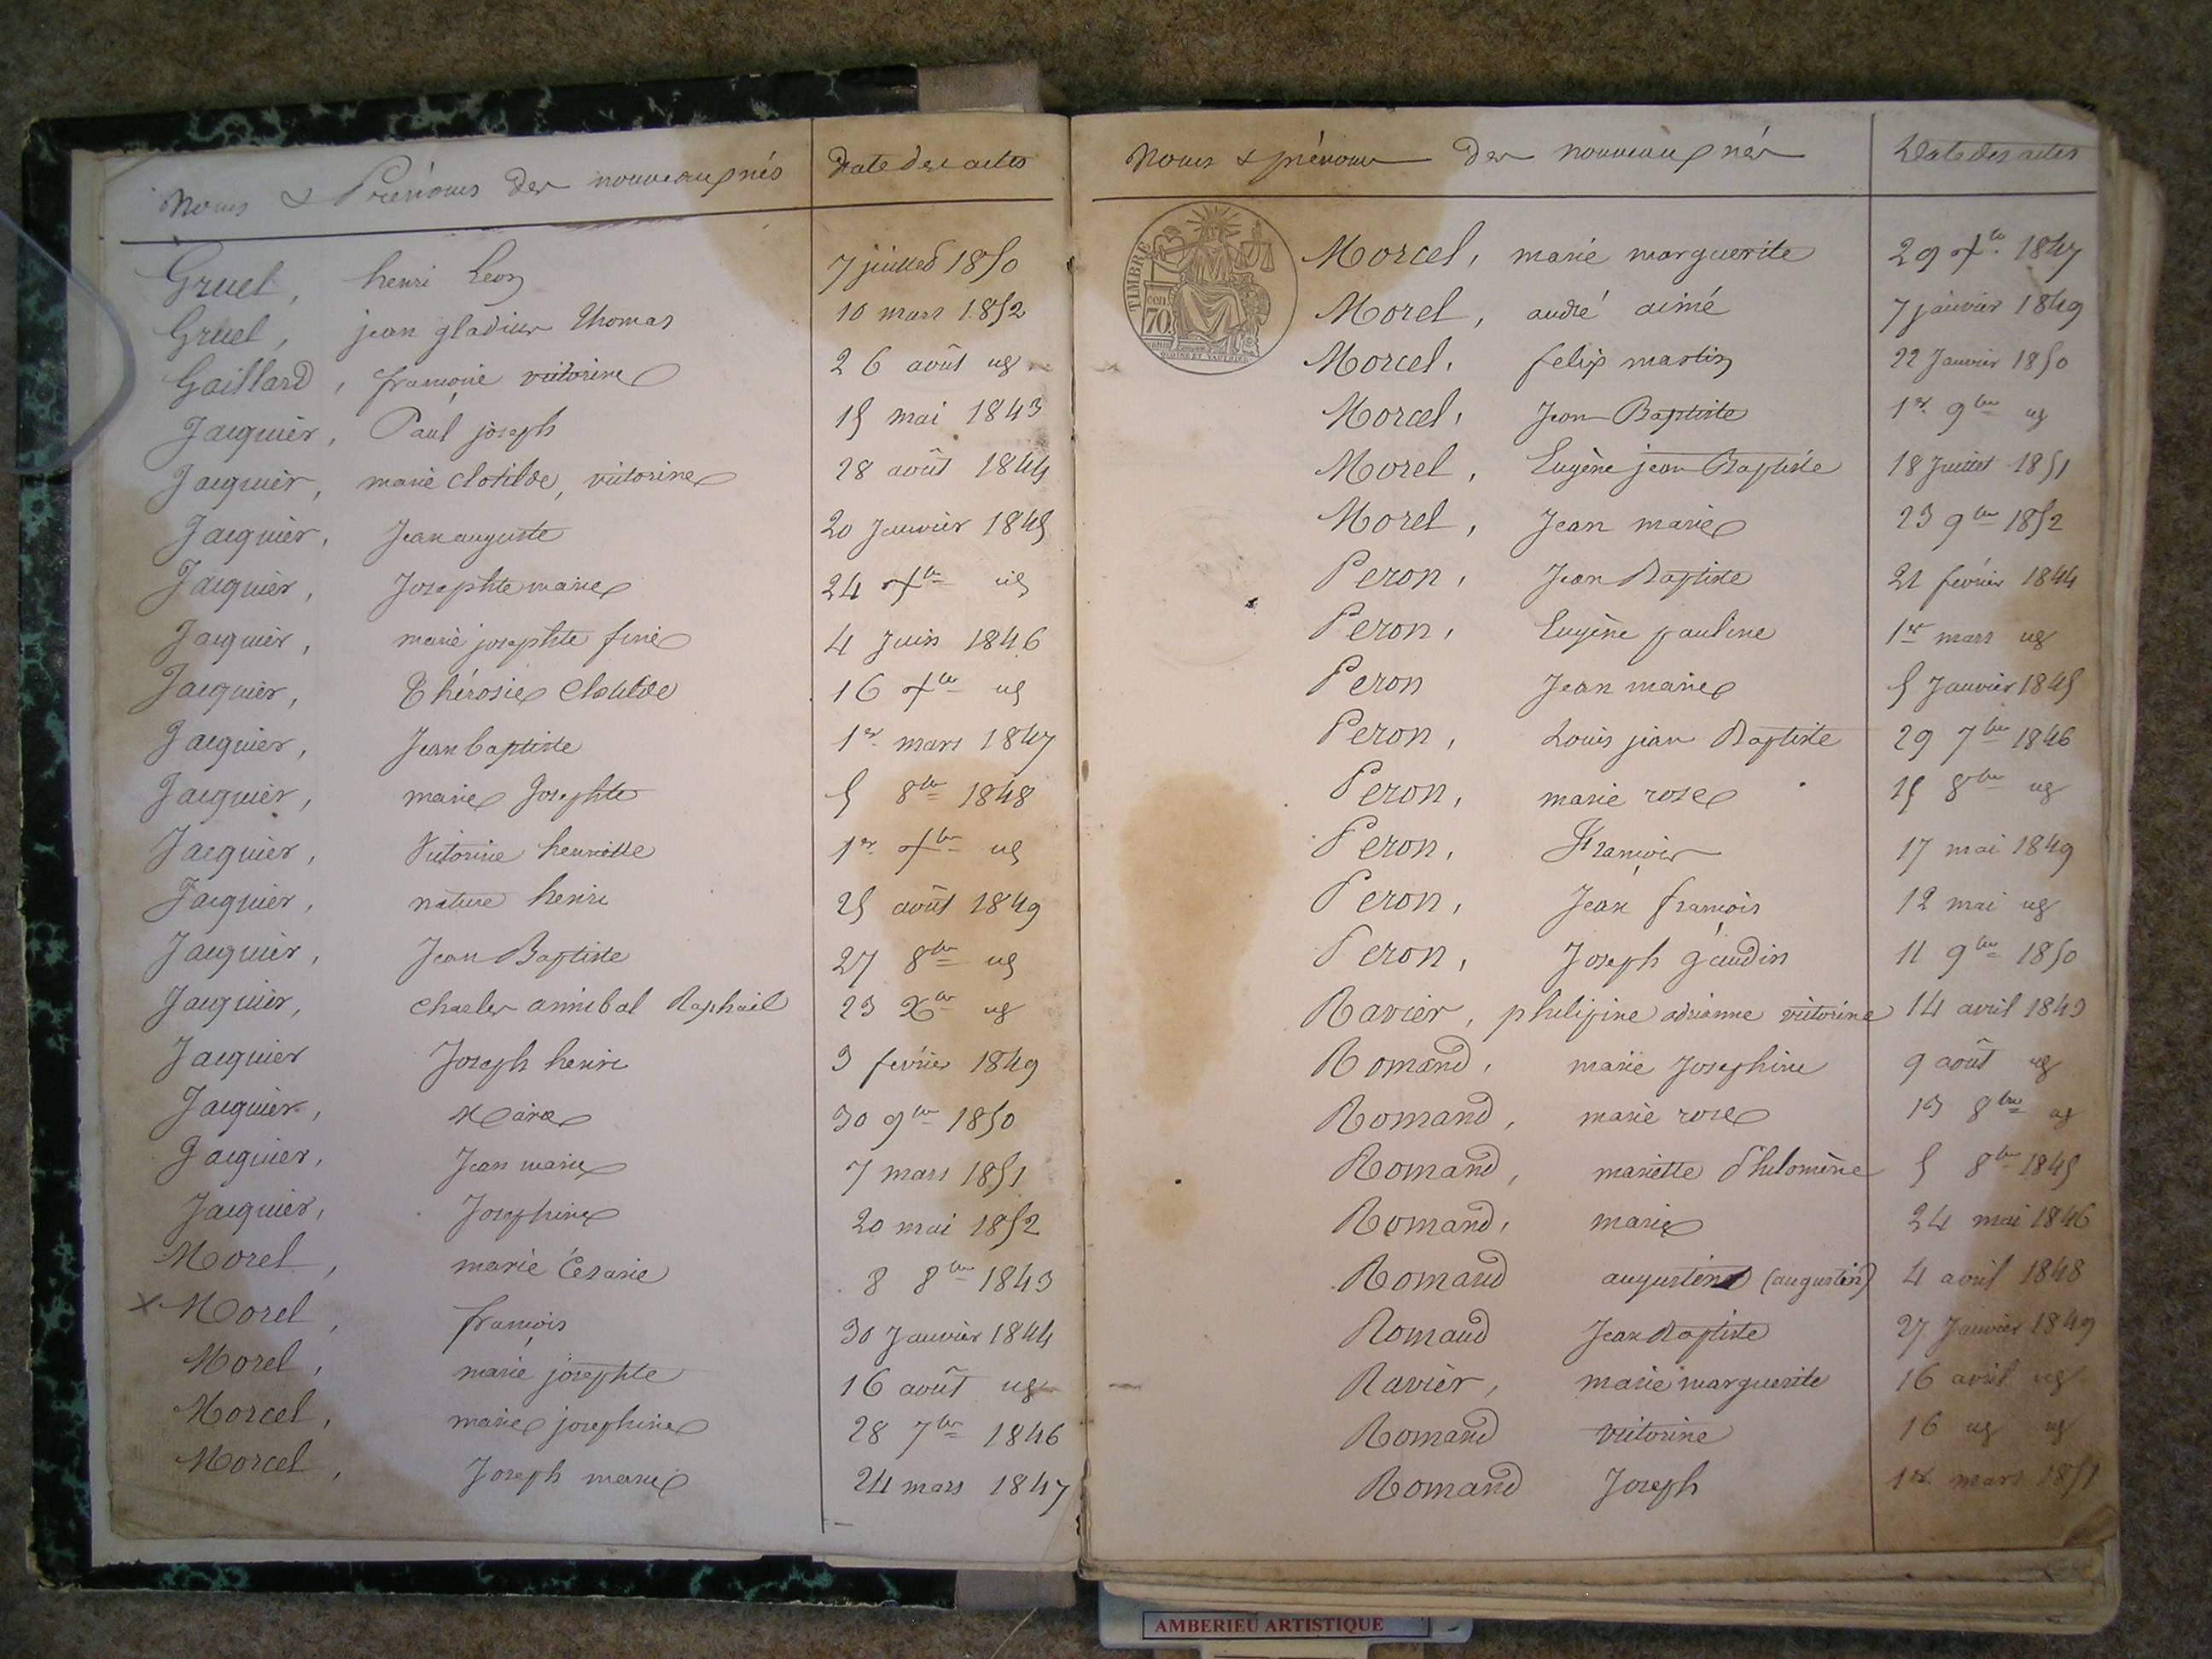 Noms & Prénoms des nouveaux nés Date des actes
Gruel, henri Leon 7 juillet 1850
Gruel, jean gladius Thomas 10 mars 1852
Gaillard, françoise victorine 26 août ug
Jacquier, Paul joseph 15 mai 1843
Jacquier, marie Clotilde, victorine 28 août 1844
Jacquier, Jean auguste 20 Janvier 1845
Jacquier, Josephte marie 24 xbre ug
Jacquier, marie josephte finie 4 Juin 1846
Jacquier, Thérosie Clotilde 16 xbre ug
Jacquier, Jean baptiste 1er mars 1847
Jacquier, marie Josephte 5 8bre 1848
Jacquier, Victorine henriette 1er xbre ug
Jacquier, nature henri 25 août 1849
Jacquier, Jean Baptiste 27 8bre ug
Jacquier, Charles annibal Raphaël 23 Xbre ug
Jacquier Joseph henri 3 février 1849
Jacquier, 30 9bre 1850
Jacquier, Jean marie 7 mars 1851
Jacquier, Josephine 20 mai 1852
Morel, marie Césarie 8 8bre 1843
x Morel, françois 30 Janvier 1844
Morel, marie josephte 16 août ug
Morcel, marie josephine 28 7bre 1846
Morcel, Joseph marie 24 mars 1847
Noms & prénoms des nouveaux nés Date des actes
TIMBRE
70
Morcel, marie marguerite 29 xbre 1847
Morel, andré aimé 7 janvier 1849
Morcel, felix martin 22 Janvier 1850
Morcel, Jean Baptiste 1er 9bre ug
Morel, Eugène jean Baptiste 18 Juillet 1851
Morel, Jean marie 23 9bre 1852
Peron, Jean Baptiste 21 février 1844
Peron, Eugène pauline 1er mars ug
Peron Jean marie 5 Janvier 1845
Peron, Louis jean Baptiste 29 7bre 1846
Peron, marie rose 15 8bre ug
Peron, François 17 mai 1849
Peron, Jean françois 12 mai ug
Peron, Joseph gaudin 11 9bre 1850
Ravier, philipine adrianne victorine 14 avril 1843
Romand, marie Josephine 9 août ug
Romand, marie rose 13 8bre ug
Romand, mariette Philomène 5 8bre 1845
Romand, marie 24 mai 1846
Romand augustine (augustin) 4 avril 1848
Romand Jean Baptiste 27 Janvier 1849
Ravier, marie marguerite 16 avril ug
Romand victorine 16 ug ug
Romand Joseph 1er mars 1851
AMBERIEU ARTISTIQUE